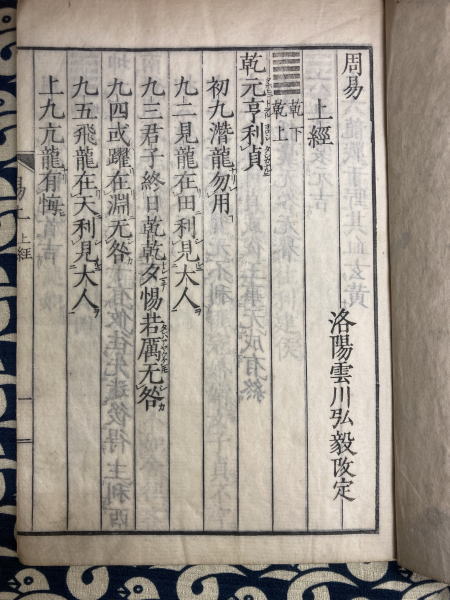 周易
上經
洛陽雲川弘毅改定
乾下
乾上
乾元亨利貞
初九潛龍勿用
九二見龍在田利見大人
九三君子終日乾乾夕惕若厲无咎
九四或躍在淵无咎
九五飛龍在天利見大人
上九亢龍有悔
易一 上經
一